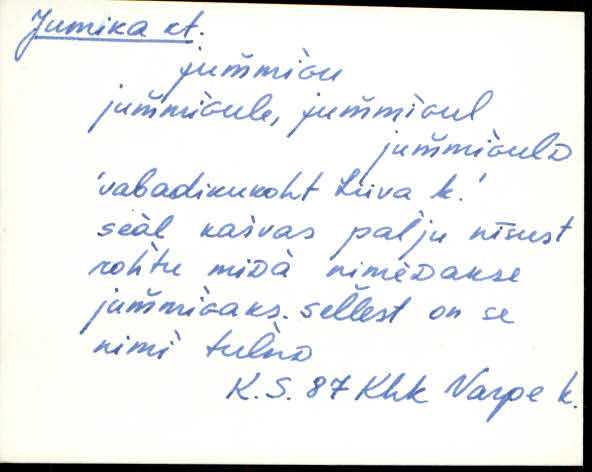 Jumika kt.
jum̆miGu
jum̆miGule, jum̆miGul
jum̆miGulD
'vabadikukoht Liiva k.'
seäl kašvas paĺju nīsust
rohtu miDà nimèDakse
jum̆miGaks. sel̆lest on se
nimì tulnD
K.S. 87 Khk Varpe k.